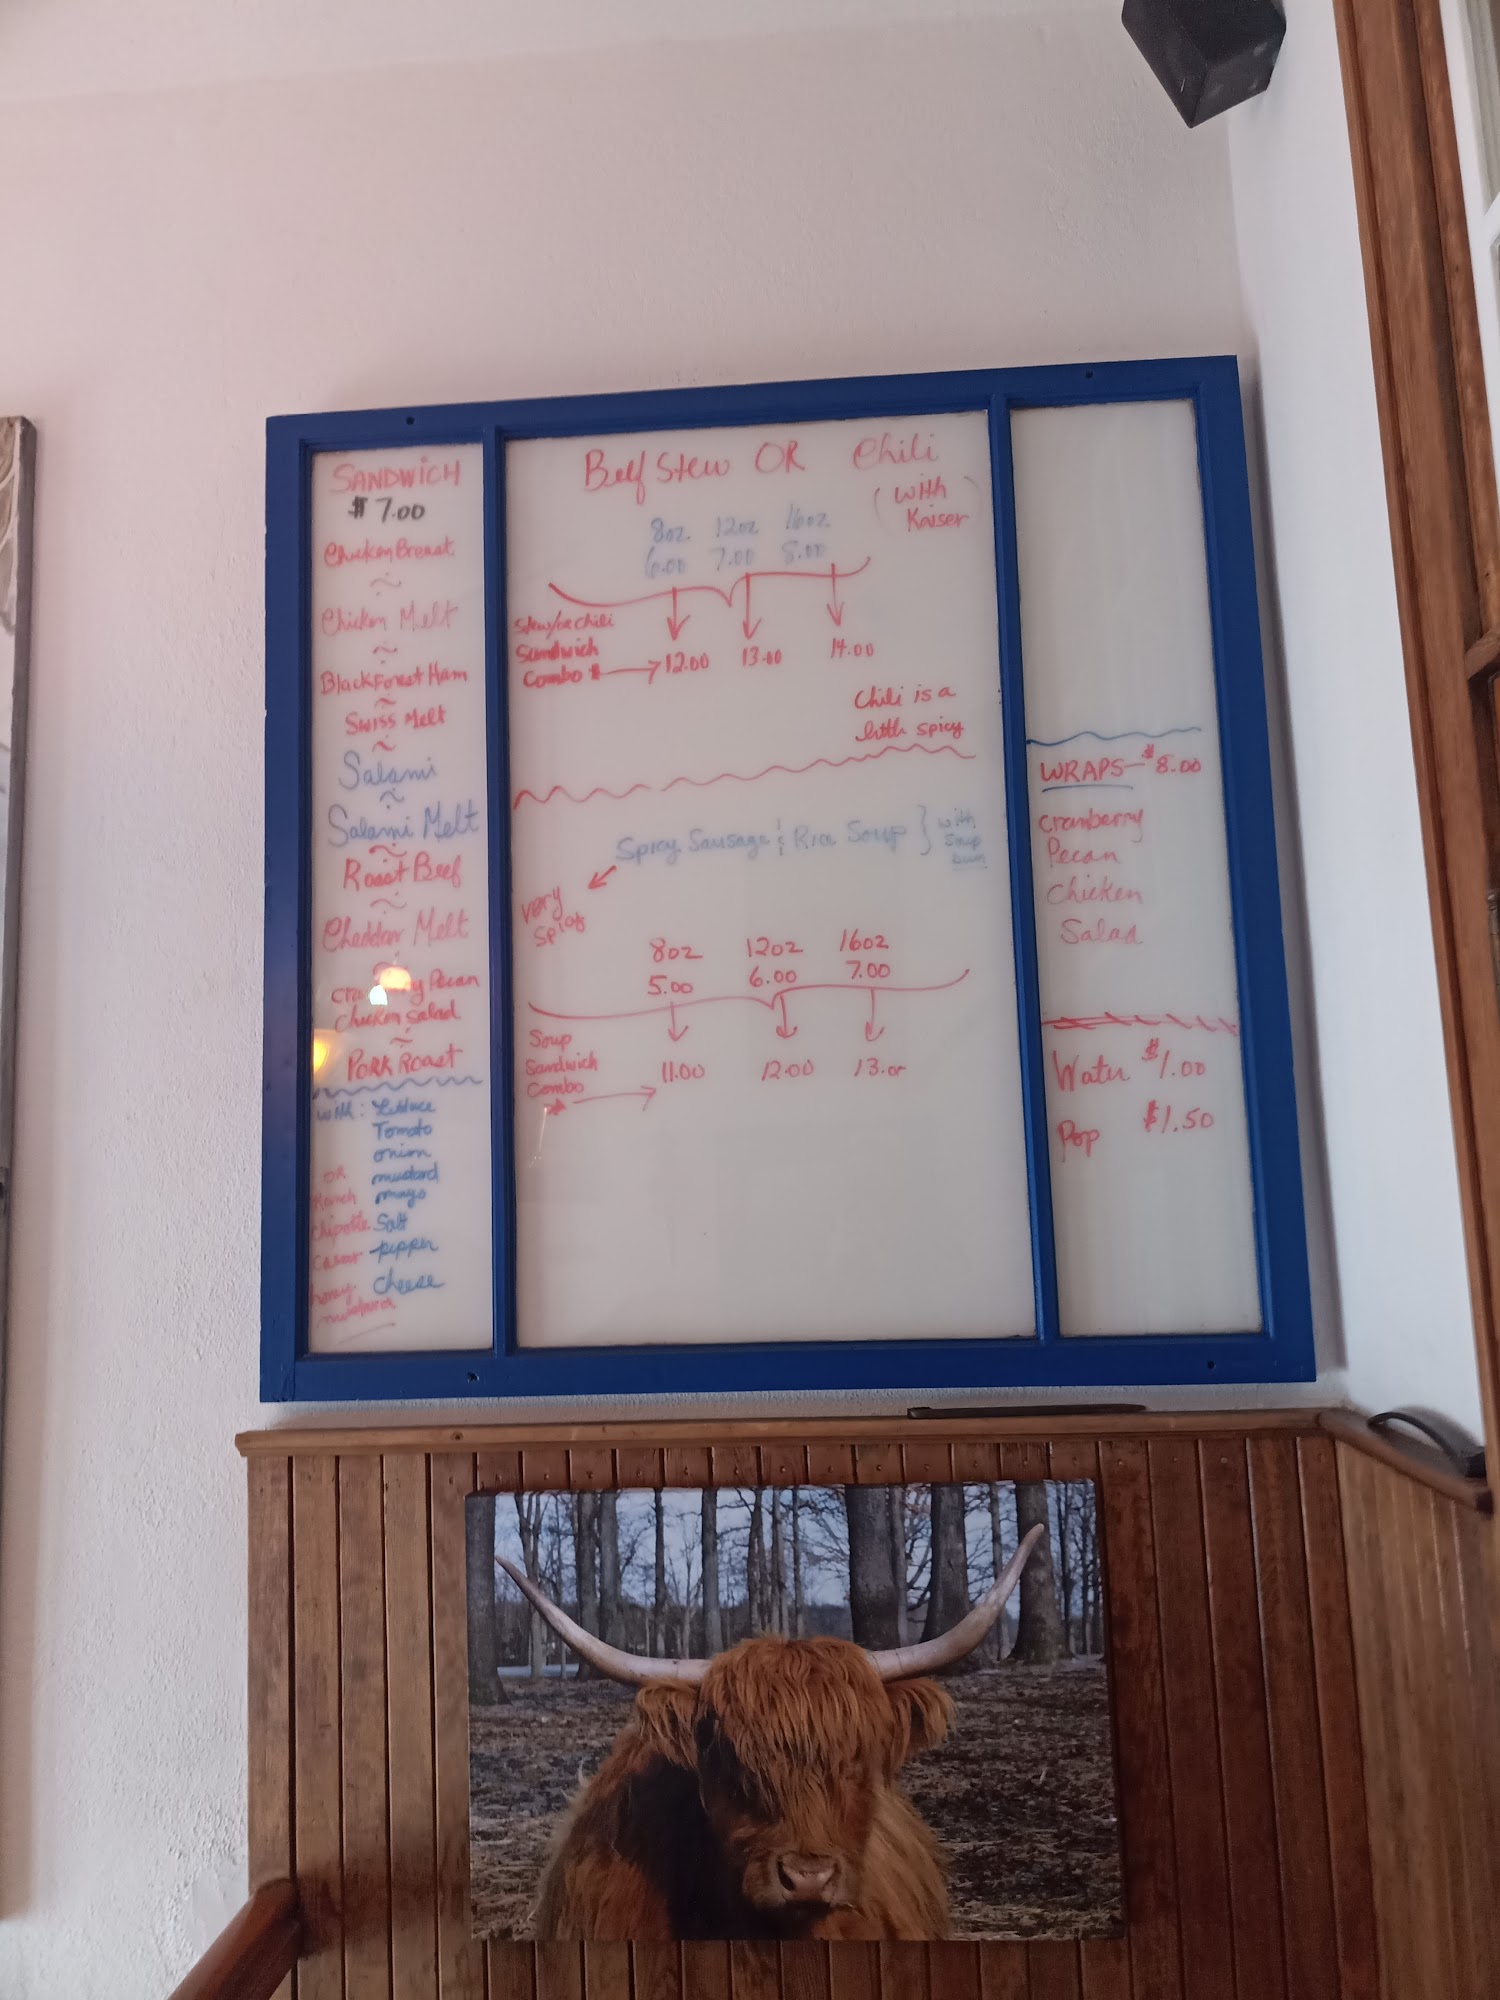 SANDWICH
$ 7.00
Chicken Breast
~
Chicken Melt
~
Black Forest Ham
~
Swiss Melt
~
Salami
~
Salami Melt
~
Roast Beef
~
Cheddar Melt
~
Pecan
Chicken Salad
~
PORK ROAST
with: Lettuce
Tomato
onion
OR mustard
Ranch mayo
chipotle Salt
caesar pepper
honey cheese
mustard
Beef Stew OR Chili
(with
Kaiser)
8oz. 12oz 16oz.
6.00 7.00 8.00
Stew/or chili
Sandwich
Combo → 12.00 13.00 14.00
Chili is a
little spicy
Spicy Sausage & Rice Soup } with
Soup
bun
very
spicy
8oz 12oz 16oz
5.00 6.00 7.00
Soup
Sandwich
Combo
→ 11.00 12.00 13.00
WRAPS – $8.00
cranberry
Pecan
Chicken
Salad
Water $1.00
Pop $1.50